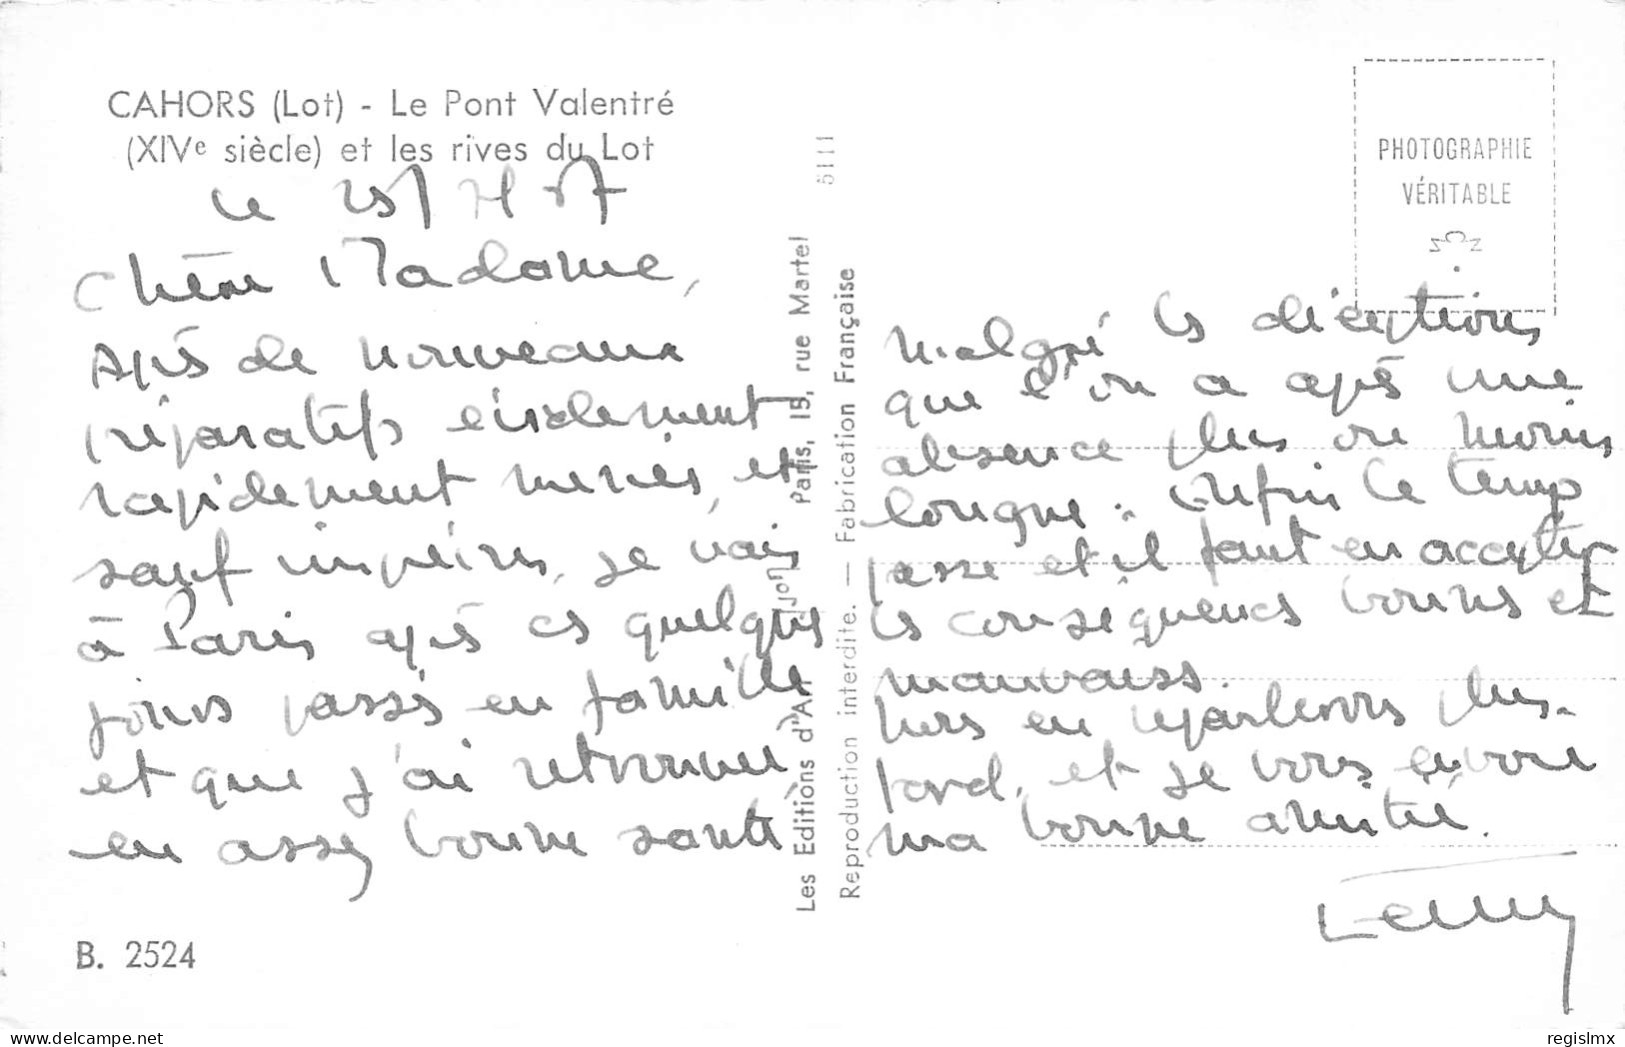 CAHORS (Lot) - Le Pont Valentré
(XIVe siècle) et les rives du Lot
Le 25/
Chère Madame,
Après de nouveaux
préparatifs
rapidement menés, et
sauf imprévus, je vais
à Paris après ces quelques
jours passés en famille
et que j'ai
en assez bonne santé
Malgré les déceptions
que l'on a après une
absence plus ou moins
longue. Enfin le temps
passe et il faut en accepter
les conséquences bonnes et
mauvaises.
Nous en reparlerons plus
tard, et je vous envoie
ma bonne amitié.
B. 2524
Les Editions d'Art
Paris, 15, rue Martel
Reproduction interdite. — Fabrication Française
5111
PHOTOGRAPHIE
VÉRITABLE
Delcampe.net
regislmx